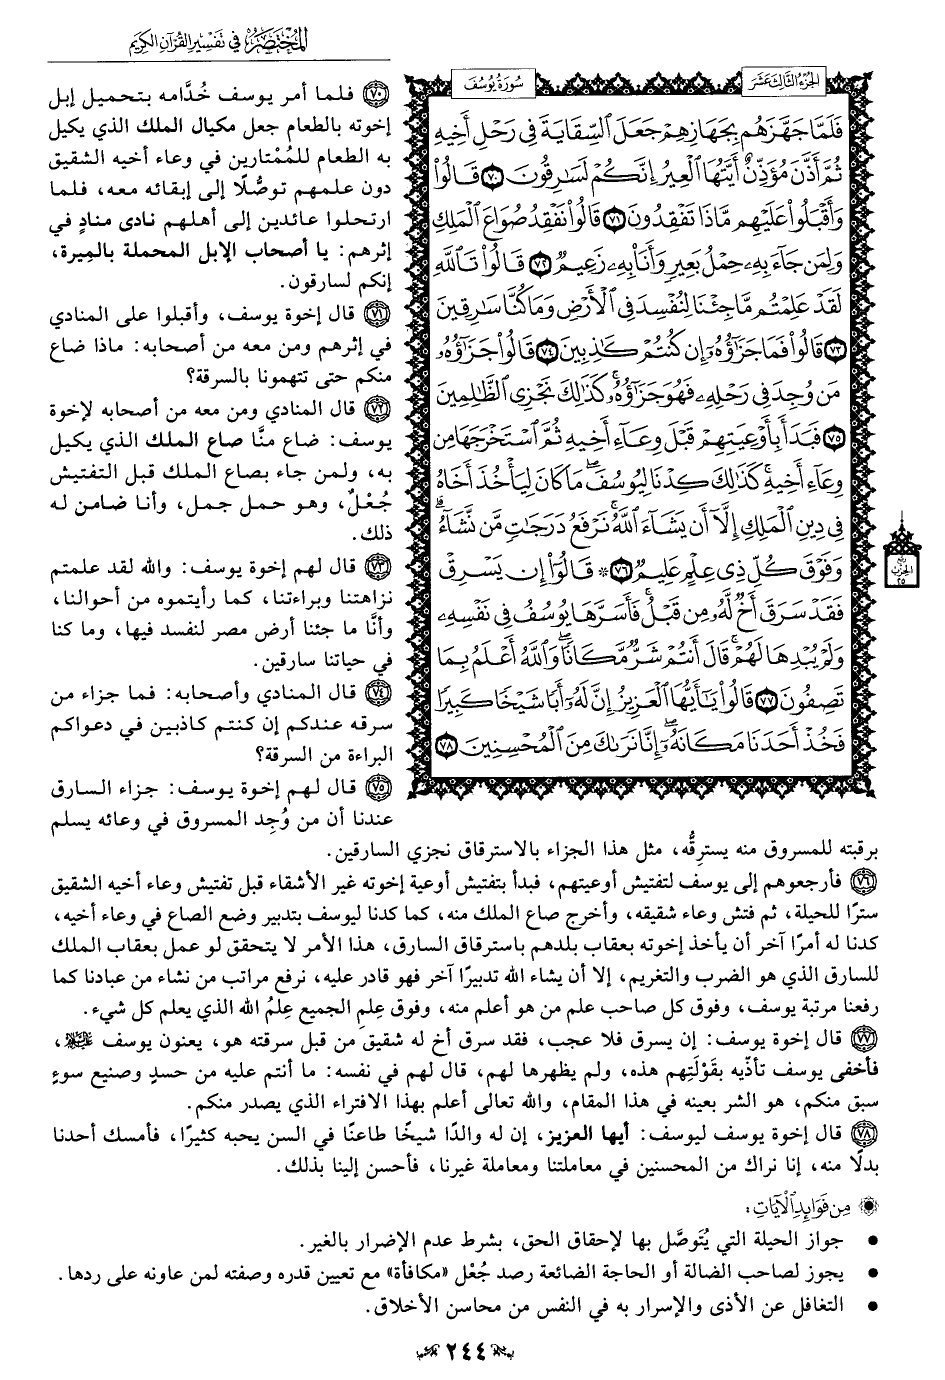 المختصر في تفسير القرآن الكريم
الجزء الثالث عشر
سورة يوسف
فَلَمَّا جَهَّزَهُم بِجَهَازِهِمْ جَعَلَ ٱلسِّقَايَةَ فِى رَحْلِ أَخِيهِ
ثُمَّ أَذَّنَ مُؤَذِّنٌ أَيَّتُهَا ٱلْعِيرُ إِنَّكُمْ لَسَٰرِقُونَ ٧٠ قَالُواْ
وَأَقْبَلُواْ عَلَيْهِم مَّاذَا تَفْقِدُونَ ٧١ قَالُواْ نَفْقِدُ صُوَاعَ ٱلْمَلِكِ
وَلِمَن جَآءَ بِهِۦ حِمْلُ بَعِيرٍ وَأَنَا۠ بِهِۦ زَعِيمٌ ٧٢ قَالُواْ تَٱللَّهِ
لَقَدْ عَلِمْتُم مَّا جِئْنَا لِنُفْسِدَ فِى ٱلْأَرْضِ وَمَا كُنَّا سَٰرِقِينَ
٧٣ قَالُواْ فَمَا جَزَٰٓؤُهُۥٓ إِن كُنتُمْ كَٰذِبِينَ ٧٤ قَالُواْ جَزَٰٓؤُهُۥ
مَن وُجِدَ فِى رَحْلِهِۦ فَهُوَ جَزَٰٓؤُهُۥۚ كَذَٰلِكَ نَجْزِى ٱلظَّٰلِمِينَ
٧٥ فَبَدَأَ بِأَوْعِيَتِهِمْ قَبْلَ وِعَآءِ أَخِيهِ ثُمَّ ٱسْتَخْرَجَهَا مِن
وِعَآءِ أَخِيهِۚ كَذَٰلِكَ كِدْنَا لِيُوسُفَۖ مَا كَانَ لِيَأْخُذَ أَخَاهُ
فِى دِينِ ٱلْمَلِكِ إِلَّآ أَن يَشَآءَ ٱللَّهُۚ نَرْفَعُ دَرَجَٰتٍ مَّن نَّشَآءُۗ
وَفَوْقَ كُلِّ ذِى عِلْمٍ عَلِيمٌ ٧٦ ۞ قَالُوٓاْ إِن يَسْرِقْ
فَقَدْ سَرَقَ أَخٌ لَّهُۥ مِن قَبْلُۚ فَأَسَرَّهَا يُوسُفُ فِى نَفْسِهِۦ
وَلَمْ يُبْدِهَا لَهُمْۚ قَالَ أَنتُمْ شَرٌّ مَّكَانًاۖ وَٱللَّهُ أَعْلَمُ بِمَا
تَصِفُونَ ٧٧ قَالُواْ يَٰٓأَيُّهَا ٱلْعَزِيزُ إِنَّ لَهُۥٓ أَبًا شَيْخًا كَبِيرًا
فَخُذْ أَحَدَنَا مَكَانَهُۥٓۖ إِنَّا نَرَىٰكَ مِنَ ٱلْمُحْسِنِينَ ٧٨
ربع
الحزب
٢٥
٧٠ فلما أمر يوسف خُدَّامه بتحميل إبل
إخوته بالطعام جعل مكيال الملك الذي يكيل
به الطعام للمُمْتارين في وعاء أخيه الشقيق
دون علمهم توصُّلًا إلى إبقائه معه، فلما
ارتحلوا عائدين إلى أهلهم نادى منادٍ في
إثرهم: يا أصحاب الإبل المحملة بالمِيرة،
إنكم لسارقون.
٧١ قال إخوة يوسف، وأقبلوا على المنادي
في إثرهم ومن معه من أصحابه: ماذا ضاع
منكم حتى تتهمونا بالسرقة؟
٧٢ قال المنادي ومن معه من أصحابه لإخوة
يوسف: ضاع منَّا صاع الملك الذي يكيل
به، ولمن جاء بصاع الملك قبل التفتيش
جُعْلٌ، وهو حمل جمل، وأنا ضامن له
ذلك.
٧٣ قال لهم إخوة يوسف: والله لقد علمتم
نزاهتنا وبراءتنا، كما رأيتموه من أحوالنا،
وأنَّا ما جئنا أرض مصر لنفسد فيها، وما كنا
في حياتنا سارقين.
٧٤ قال المنادي وأصحابه: فما جزاء من
سرقه عندكم إن كنتم كاذبين في دعواكم
البراءة من السرقة؟
٧٥ قال لهم إخوة يوسف: جزاء السارق
عندنا أن من وُجِد المسروق في وعائه يسلم
برقبته للمسروق منه يسترِقُّه، مثل هذا الجزاء بالاسترقاق نجزي السارقين.
٧٦ فأرجعوهم إلى يوسف لتفتيش أوعيتهم، فبدأ بتفتيش أوعية إخوته غير الأشقاء قبل تفتيش وعاء أخيه الشقيق
سترًا للحيلة، ثم فتش وعاء شقيقه، وأخرج صاع الملك منه، كما كدنا ليوسف بتدبير وضع الصاع في وعاء أخيه،
كدنا له أمرًا آخر أن يأخذ إخوته بعقاب بلدهم باسترقاق السارق، هذا الأمر لا يتحقق لو عمل بعقاب الملك
للسارق الذي هو الضرب والتغريم، إلا أن يشاء الله تدبيرًا آخر فهو قادر عليه، نرفع مراتب من نشاء من عبادنا كما
رفعنا مرتبة يوسف، وفوق كل صاحب علم من هو أعلم منه، وفوق عِلمِ الجميع عِلمُ الله الذي يعلم كل شيء.
٧٧ قال إخوة يوسف: إن يسرق فلا عجب، فقد سرق أخ له شقيق من قبل سرقته هو، يعنون يوسف ،
فأخفى يوسف تأذّيه بقَوْلَتِهم هذه، ولم يظهرها لهم، قال لهم في نفسه: ما أنتم عليه من حسدٍ وصنيع سوءٍ
سبق منكم، هو الشر بعينه في هذا المقام، والله تعالى أعلم بهذا الافتراء الذي يصدر منكم.
٧٨ قال إخوة يوسف ليوسف: أيها العزيز، إن له والدًا شيخًا طاعنًا في السن يحبه كثيرًا، فأمسك أحدنا
بدلًا منه، إنا نراك من المحسنين في معاملتنا ومعاملة غيرنا، فأحسن إلينا بذلك.
من فوائد الآيات:
• جواز الحيلة التي يُتَوصَّل بها لإحقاق الحق، بشرط عدم الإضرار بالغير.
• يجوز لصاحب الضالة أو الحاجة الضائعة رصد جُعْل «مكافأة» مع تعيين قدره وصفته لمن عاونه على ردها.
• التغافل عن الأذى والإسرار به في النفس من محاسن الأخلاق.
٢٤٤